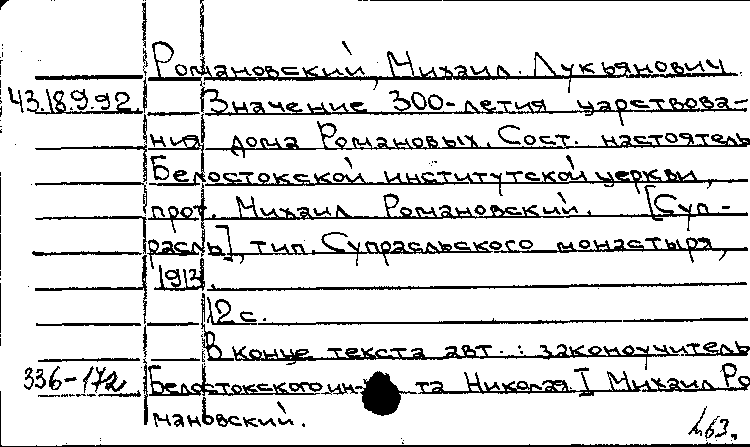 Романовский, Михаил Лукьянович
43.189.92 Значение 300-летия царствова-
ния дома Романовых. Сост. настоятель
Белостокской институтской церкви,
прот. Михаил Романовский. [Суп-
расль], тип. Супрасльского монастыря,
1913.
12 с.
В конце текста авт.: законоучитель
336-172 Белостокского ин-та Николая I Михаил Ро
мановский.